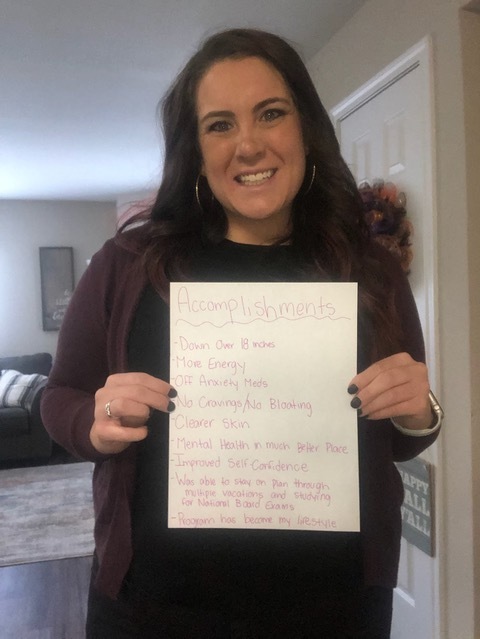 Accomplishments
- Down Over 18 inches
- More Energy
- Off Anxiety Meds
- No Cravings/No Bloating
- Clearer Skin
- Mental Health in much Better Place
- Improved Self-Confidence
- Was able to stay on plan through
multiple vacations and studying
for National Board Exams
- Program has become my lifestyle
HAPPY
FALL
Y'ALL